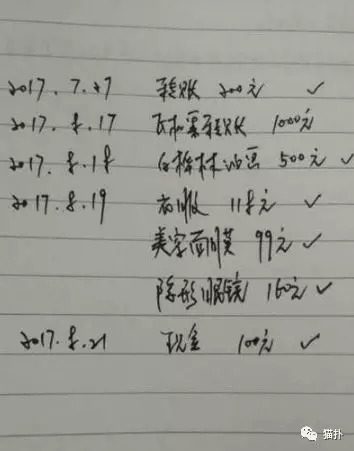 2017.7.27 转账 200元 ✓
2017.8.17 转账 1000元 ✓
2017.8.18 白桦林油画 500元 ✓
2017.8.19 衣服 118元 ✓
美容面膜 99元 ✓
隐形眼镜 160元 ✓
2017.8.21 现金 100元 ✓
猫扑